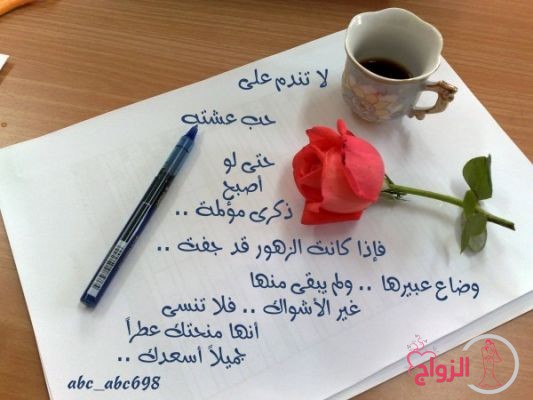 لا تندم على
حب عشته
حتى لو
أصبح
ذكرى مؤلمة ..
فإذا كانت الزهور قد جفت ..
وضاع عبيرها .. ولم يبقى منها
غير الأشواك .. فلا تنسى
أنها منحتك عطراً
جميلاً أسعدك ..
abc_abc698
الزواج